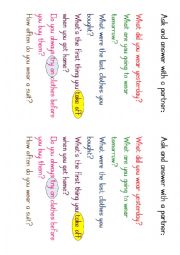 Ask and answer with a partner:
What did you wear yesterday?
What are you going to wear
tomorrow?
What were the last clothes you
bought?
What's the first thing you take off
when you get home?
Do you always try on clothes before
you buy them?
How often do you wear a suit?
Ask and answer with a partner:
What did you wear yesterday?
What are you going to wear
tomorrow?
What were the last clothes you
bought?
What's the first thing you take off
when you get home?
Do you always try on clothes before
you buy them?
How often do you wear a suit?